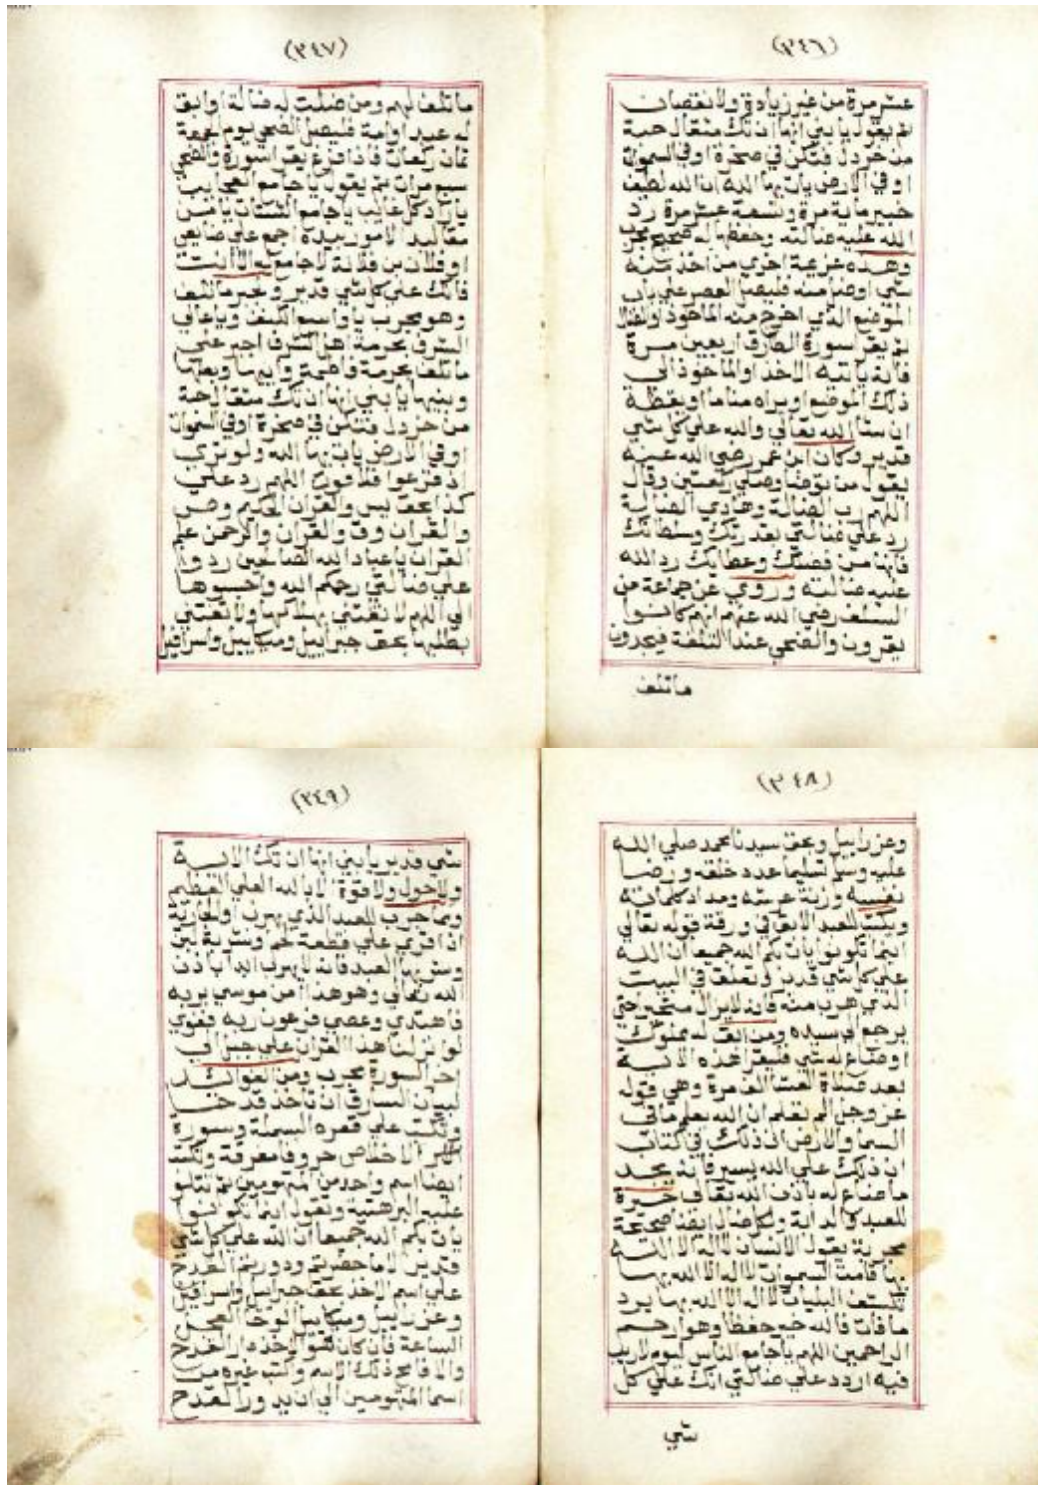 (٣٤٦)
عشر مرة من غير زيادة ولا نقصان
ثم يقول يا بني انها ان تك مثقال حبة
من خردل فتكن في صخرة او في السموات
او في الارض يات بها الله ان الله لطيف
خبير ماية مرة وتسعة عشر مرة رد
الله عليه ضالته وحفظها له صحيح مجرب
وهذه عزيمة اخري من اخذ منه
شي او ضاع منه فليصل العصر علي باب
الموضع الذي اخرج منه الماخوذ والضال
ثم يقرا سورة الطارق اربعين مرة
فانه ياتيه الاخذ او الماخوذ الي
ذلك الموضع او يراه مناما او يقظة
ان شا الله تعالي والله علي كل شي
قدير وكان ابن عمر رضي الله عنه
يقول من توضا وصلي ركعتين وقال
اللهم رب الضالة وهادي الضالة
رد علي ضالتي بقدرتك وسلطانك
فانها من فضلك وعطايك رد الله
عليه ضالته وروي عن جماعة من
السلف رضي الله عنهم انهم كانوا
يقرون والضحي عند التلفة فيجدون
ما تلف
(٣٤٧)
ما تلف لهم ومن ضلت له ضالة او ابق
له عبد او امة فليصل الضحي يوم جمعة
ثمان ركعات فاذا فرغ يقرا سورة والضحي
سبع مرات ثم يقول يا جامع العجايب
يا راد كل غايب يا جامع الشتات يا من
مقاليد الامور بيده اجمع علي ضايعي
او فلان بن فلانة لا جامع له الا انت
فانك علي كل شي قدير
وهو مجرب يا واسع الكنف ويا عالي
الشرف بحرمة اهل الشرف اجبر علي
ما تلف بحرمة فاطمة وابيها وبعلها
وبنيها يا بني انها ان تك مثقال حبة
من خردل فتكن في صخرة او في السموات
او في الارض يات بها الله ولو تري
اذ فزعوا فلا فوت اللهم رد علي
كذا بحق يس والقران الحكيم وص
والقران وق والقران والرحمن علم
القران يا عباد الله الصالحين ردوا
علي ضالتي رحمكم الله واحبسوها
الي اللهم لا تفتني بهلاكها ولا تعتني
بطلبها بحق جبراييل وميكاييل واسرافيل
(٣٤٨)
وعزراييل وبحق سيدنا محمد صلي الله
عليه وسلم تسليما عدد خلقه ورضا
نفسه وزنة عرشه ومداد كلماته
ويكتب للعبد الابق في ورقة قوله تعالي
اينما تكونوا يات بكم الله جميعا ان الله
علي كل شي قدير وتعلق في البيت
الذي هرب منه فانه لا يزال متحير حتي
يرجع الي سيده ومن ابق له مملوك
او ضاع له شي فليقرا هذه الاية
بعد صلاة العشا الف مرة وهي قوله
عز وجل الم تعلم ان الله يعلم ما في
السما والارض ان ذلك في كتاب
ان ذلك علي الله يسير فانه يجد
ما ضاع له باذن الله تعالي
للعبد والدابة ولكل ضال ايضا صحيحة
مجربة يقول الانسان لا اله الا الله
بها قامت السموات لا اله الا الله بها
تكشف البليات لا اله الا الله بها يرد
ما فات فالله خير حفظا وهو ارحم
الراحمين اللهم يا جامع الناس ليوم لا ريب
فيه اردد علي ضالتي انك علي كل
شي
(٣٤٩)
شي قدير يا بني انها ان تك الاية
ولا حول ولا قوة الا بالله العلي العظيم
ومما جرب للعبد الذي يهرب او الجارية
اذا قري علي قطعة خبز وشربة لبن
وسقيها العبد فانه لا يهرب ابدا باذن
الله تعالي وهو هذا امن موسي بربه
فاهتدي وعصي فرعون ربه فغوي
لو انزلنا هذا القران علي جبل الي
اخر السورة مجرب ومن الفوايد
لبيان السارق ان تاخذ قدحا
وتكتب علي قعره البسملة وسورة
الاخلاص حروفا مفرقة وتكتب
ايضا اسم واحد من المتهومين ثم تتلو
عليه البرهتية وتقول اينما تكونوا
يات بكم الله جميعا ان الله علي كل شي
قدير الا ما حضرتم ودورتم القدح
علي اسم الاخذ بحق جبراييل واسرافيل
وعزراييل وميكاييل الوحا العجل
الساعة فان كان هو الاخذ دار القدح
والا فامح ذلك الاسم وكتب غيره من
اسما المتهومين الي ان يدور القدح